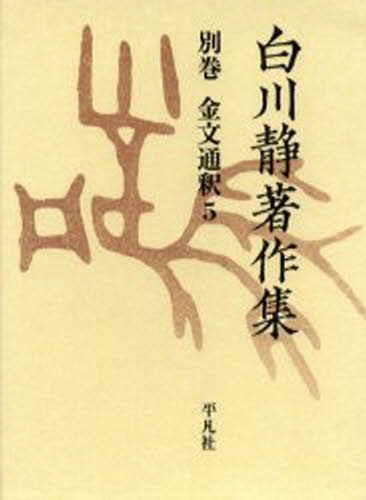 白川静著作集
別巻 金文通釈 5
平凡社